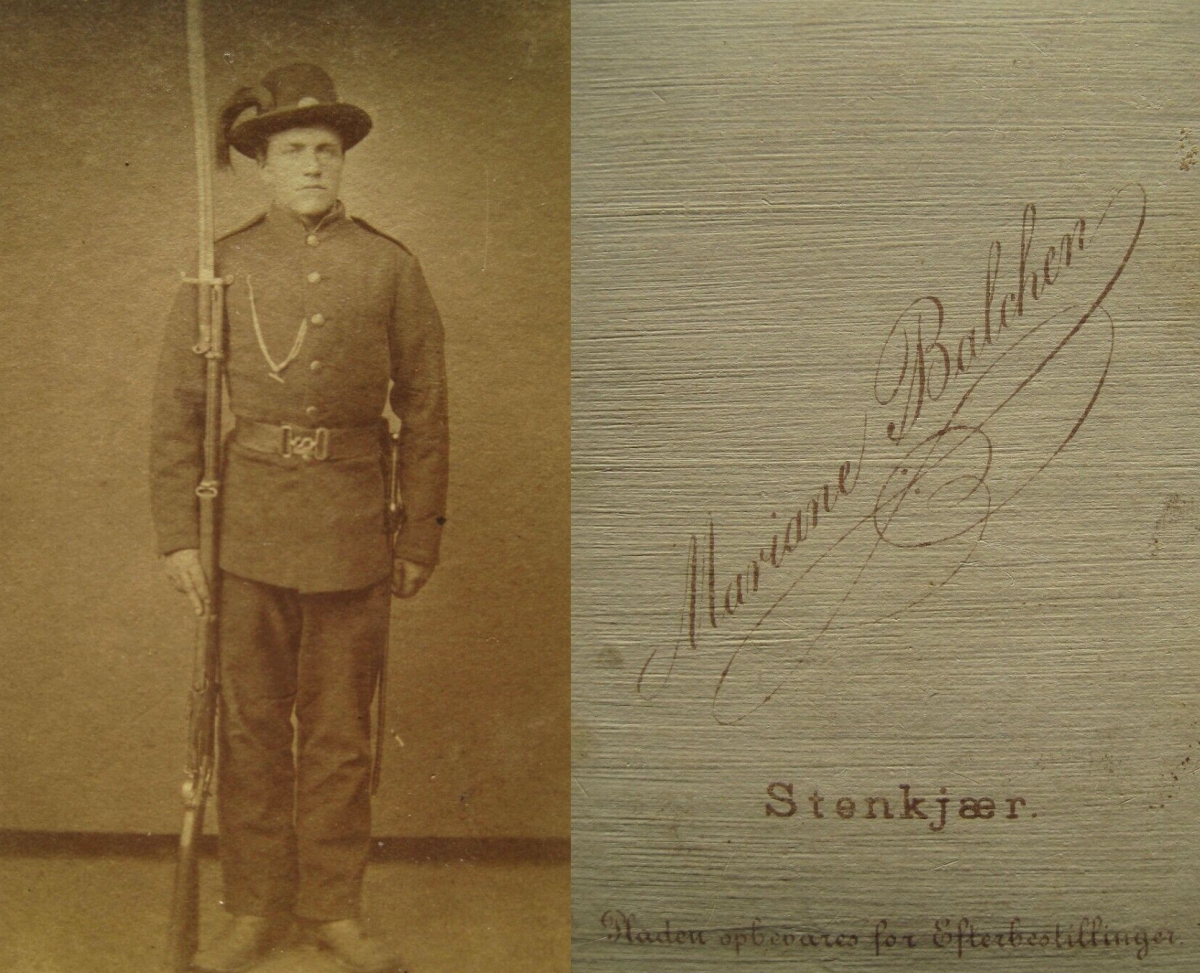 Mariane Balchen
Stenkjær.
Pladen opbevares for Efterbestillinger.